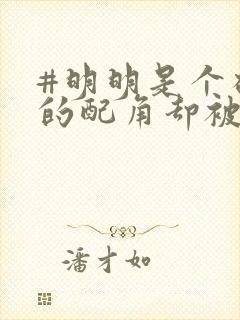 #明明是个
的配角却被
潘才如